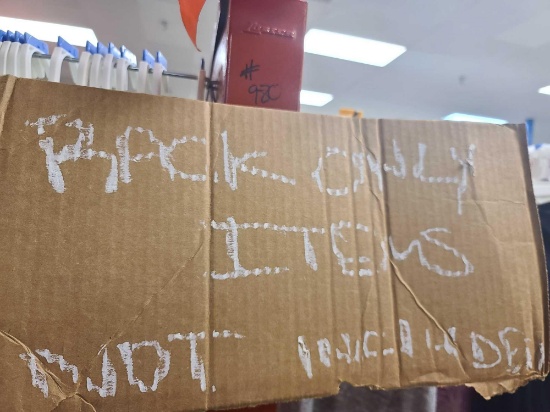 #
RACK ONLY
ITEMS
NOT INCLUDED